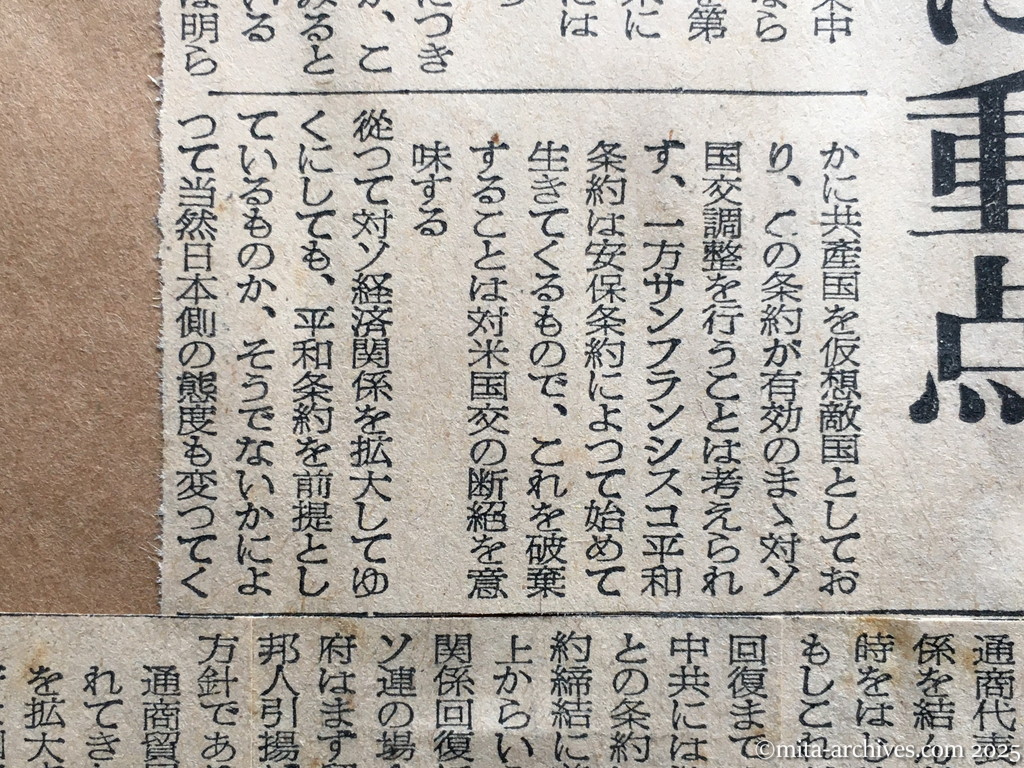 に重点
来中
なら
を第
には
につき
か、こ
みると
いる
は明ら
かに共産国を仮想敵国としてお
り、この条約が有効のまゝ対ソ
国交調整を行うことは考えられ
す、一方サンフランシスコ平和
条約は安保条約によつて始めて
生きてくるもので、これを破棄
することは対米国交の断絶を意
味する
従つて対ソ経済関係を拡大してゆ
くにしても、平和条約を前提とし
ているものか、そうでないかによ
つて当然日本側の態度も変つてく
通商代表
係を結ん
時をはし
もしこれ
回復まで
中共には
との条約
約締結に
上からい
関係回復
ソ連の場
府はまず
邦人引揚
方針であ
通商貿
れてき
を拡大
©mita-archives.com 2025